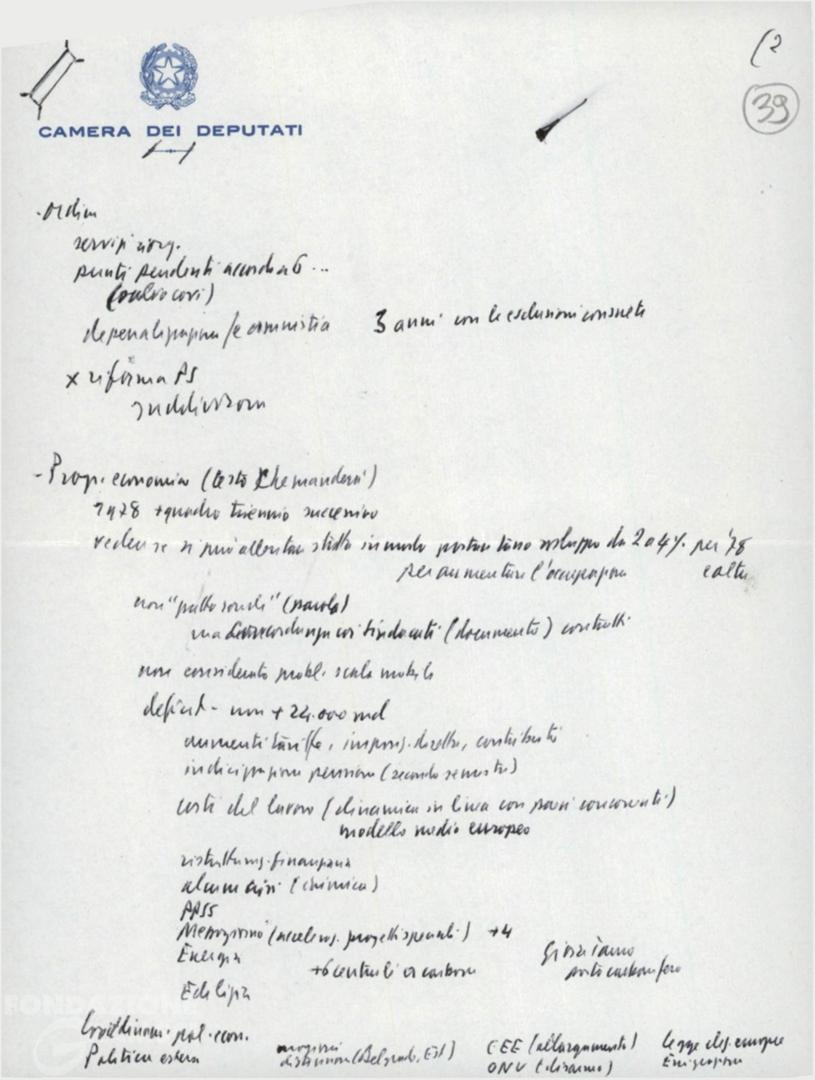 (2
39
CAMERA DEI DEPUTATI
- Ordin
servizi riorg.
punti pendenti accordati ...
(salvo covi)
depenalizzazione /e amnistia 3 anni con le esclusioni consuete
x riforma PS
suddivisione
- Progr. economico (testo che manderà)
1978 + quadro triennio successivo
vedere se si può allentare stretta in modo portare tasso sviluppo da 2 a 4% per '78
per aumentare l'occupazione e altro
non "patto sociale" (parola)
ma concordanza coi sindacati (documento) contratti
non considerato probl. scala mobile
deficit - non + 24.000 md
aumenti tariffe, impos. diretta, contributi
indicizzazione pensioni (secondo semestre)
costi del lavoro (dinamica in linea con paesi concorrenti)
modello medio europeo
ristrutturaz. finanziaria
alcuni casi (chimica)
PPSS
Mezzogiorno (acceleraz. progetti speciali) +4
Energia +6 centrali a carbone Gioia Tauro
porto carbonifero
Edilizia
FONDAZIONE
Coordinam. pol. econ.
Politica estera maggiore distensione (Belgrado, Est) CEE (allargamento) legge elez. europee
ONU (disarmo) Emigrazione